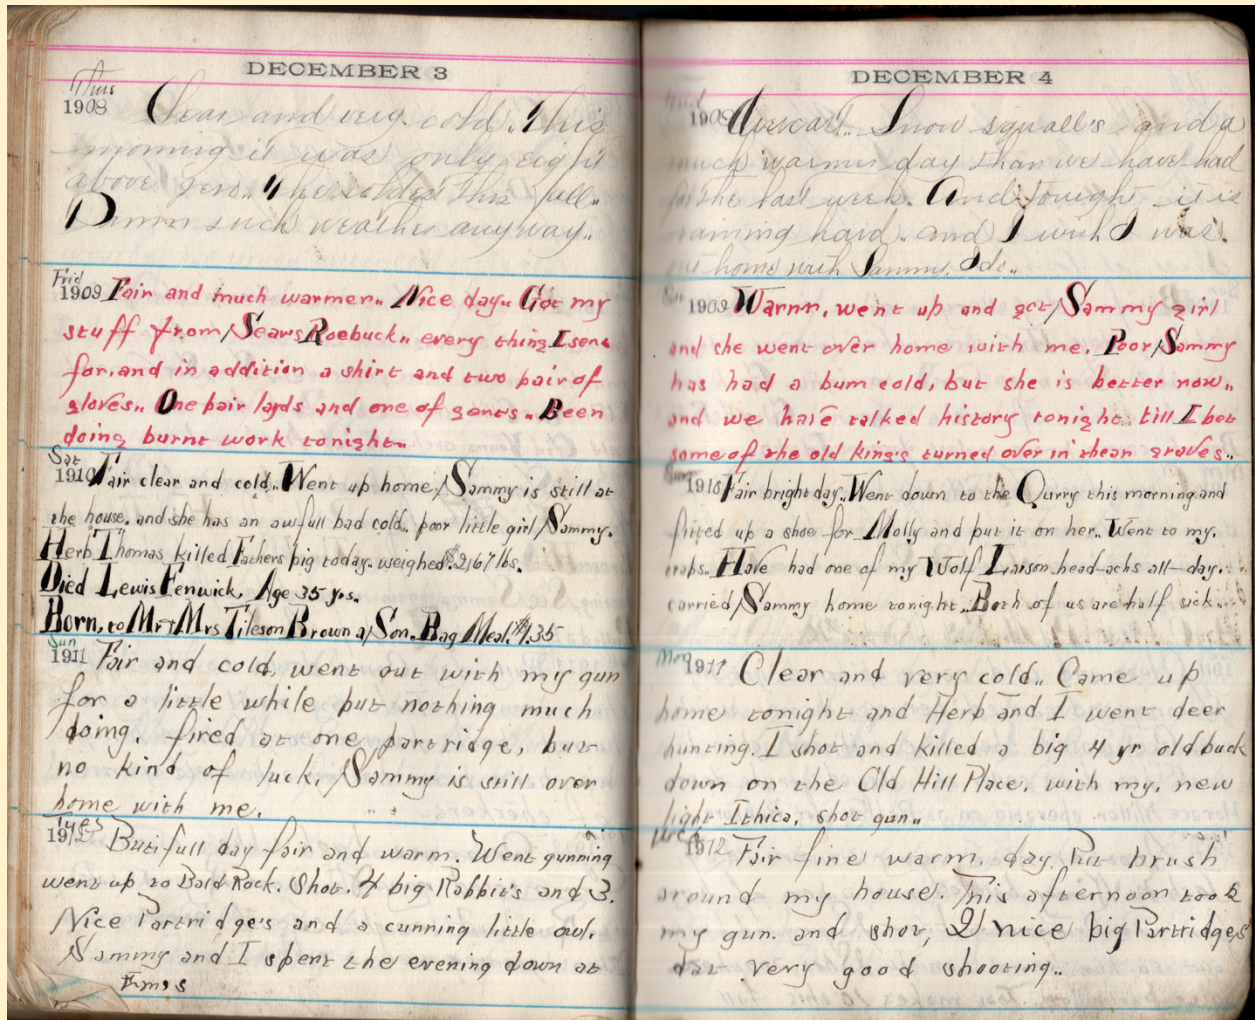 DECEMBER 3
Thus
1908 Clear and very cold. This
morning it was only eight
above zero. The coldest this fall..
Damn such weather anyway..
Frid
1909 Fair and much warmer.. Nice day.. Got my
stuff from Sears Roebuck.. every thing I sent
for. and in addition a shirt and two pair of
gloves.. One pair layds and one of gents.. Been
doing burnt work tonight..
Sat
1910 Fair clear and cold.. Went up home, Sammy is still at
the house, and she has an awfull bad cold. poor little girl Sammy.
Herb Thomas killed Fathers pig today. weighed. 267 lbs.
Died Lewis Fenwick, Age 35 yrs.
Born, to Mr & Mrs Tileson Brown a Son. Bag Meal. $1.35
Sun
1911 Fair and cold, went out with my gun
for a little while but nothing much
doing. fired at one partridge, but
no kind of luck, Sammy is still over
home with me.
Tues
1912 Butifull day fair and warm. Went gunning
went up to Bald Rock. Shot. 4 big Rabbit's and 3.
Nice Partridge's and a cunning little owl.
Sammy and I spent the evening down at
Ems
DECEMBER 4
1908 Overcast.. Snow squall's and a
much warmer day than we have had
for the last week. And tonight it is
raining hard. and I wish I was.
out home with Sammy. I do..
1909 Warm, went up and got Sammy girl
and she went over home with me. Poor Sammy
has had a bum cold, but she is better now..
and we have talked history tonight till I bet
some of the old king's turned over in thear graves..
1910 Fair bright day.. Went down to the Qurry this morning and
fitted up a shoe for Molly and put it on her.. Went to my.
traps. Have had one of my Wolf Larson head-achs all-day.
carried Sammy home tonight.. Both of us are half sick...
Mon
1911 Clear and very cold.. Came up
home tonight and Herb and I went deer
hunting. I shot and killed a big 4 yr old buck
down on the Old Hill Place, with my, new
light Ithica, shot gun..
Wed
1912 Fair fine warm. day. Put brush
around my house. This afternoon took
my gun. and shot, 2 nice big Partridges
dat very good shooting..